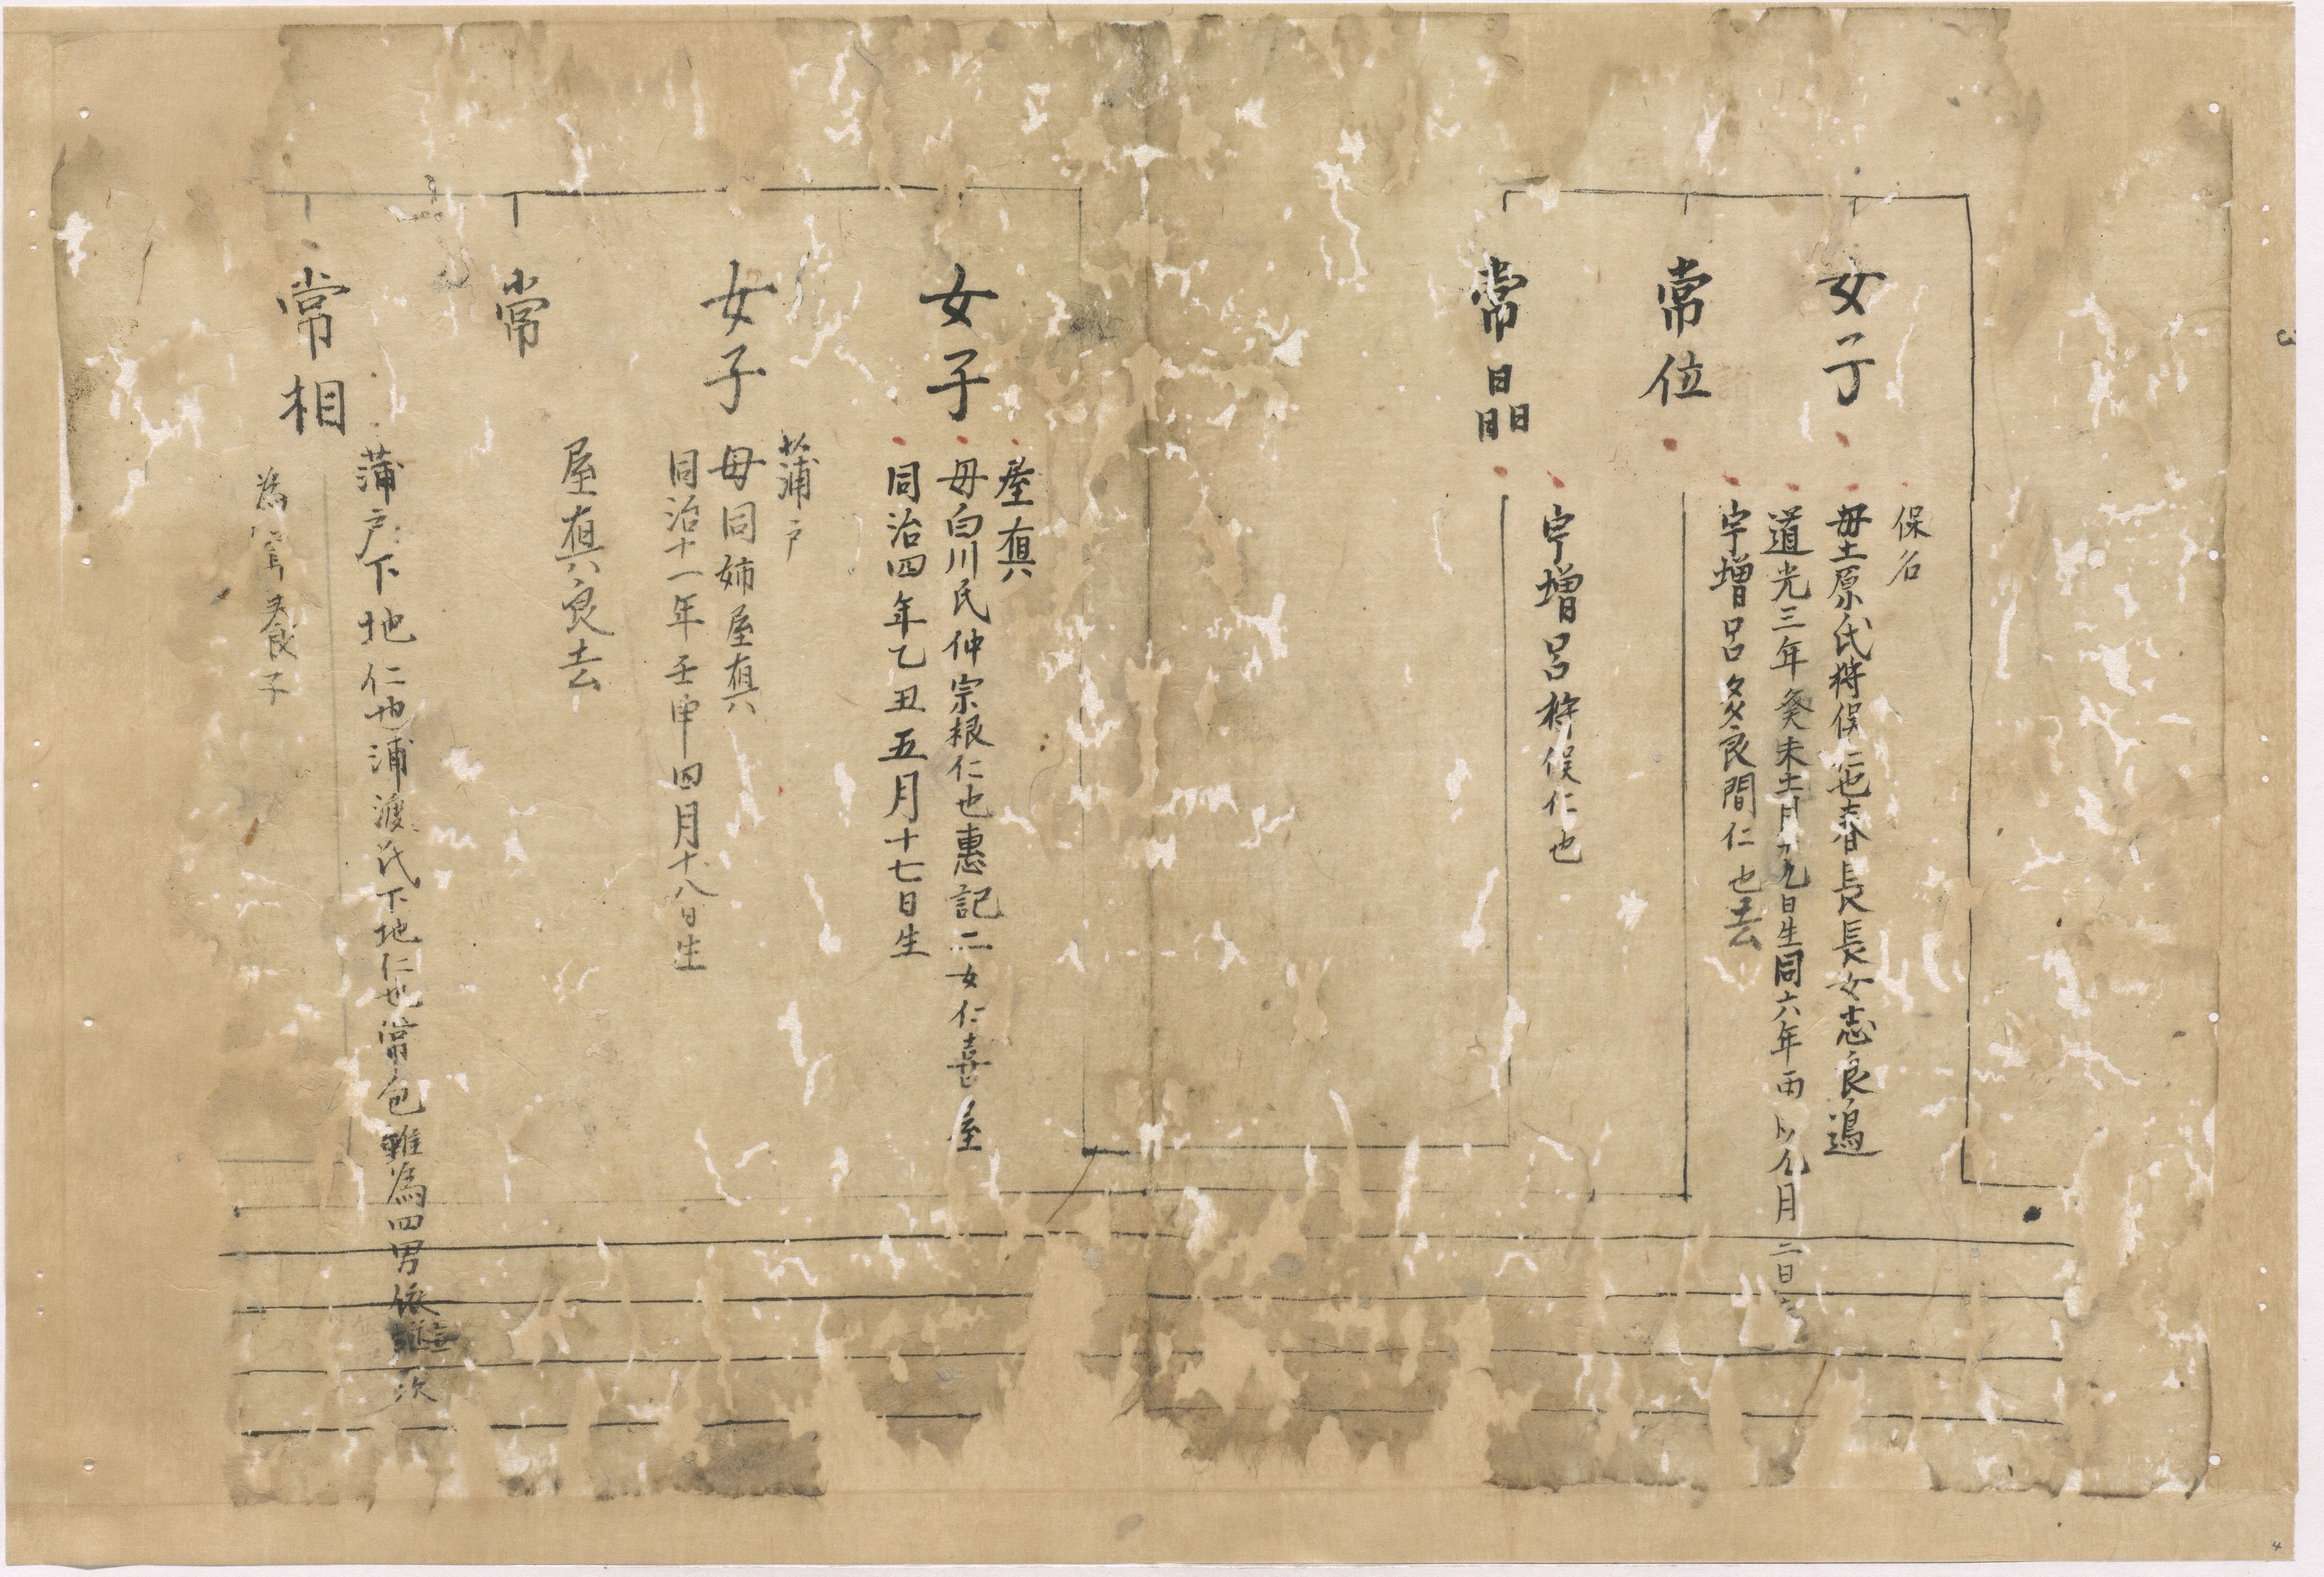 女子
保名
母土原氏将俣仁也春長長女志良過
道光三年癸未十一月十九日生同六年丙 月二日
常位
宇増呂多良間仁也去
常晶
宇増呂称俣仁也
女子
屋真
母白川氏仲宗根仁也惠記二女仁喜屋
同治四年乙丑五月十七日生
女子
蒲戸
母同姉屋真
同治十一年壬申四月十八日生
常
屋真良去
常相
蒲戸下地仁也浦渡氏下地仁也常包雖為四男依 次
為 養子